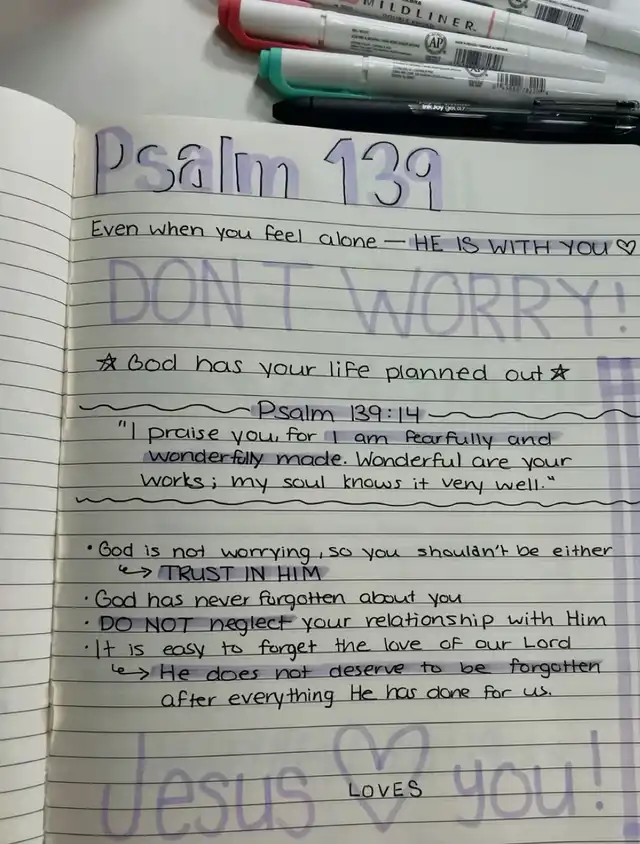 MILDLINER
AP
AP
InkJoy gel 0.7
Psalm 139
Even when you feel alone — HE IS WITH YOU ♡
DON'T WORRY!
☆ God has your life planned out ☆
Psalm 139:14
"I praise you, for I am fearfully and
wonderfully made. Wonderful are your
works; my soul knows it very well."
• God is not worrying, so you shouldn't be either
↳ TRUST IN HIM
• God has never forgotten about you
• DO NOT neglect your relationship with Him
• It is easy to forget the love of our Lord
↳ He does not deserve to be forgotten
after everything He has done for us.
Jesus ♡ you!
LOVES